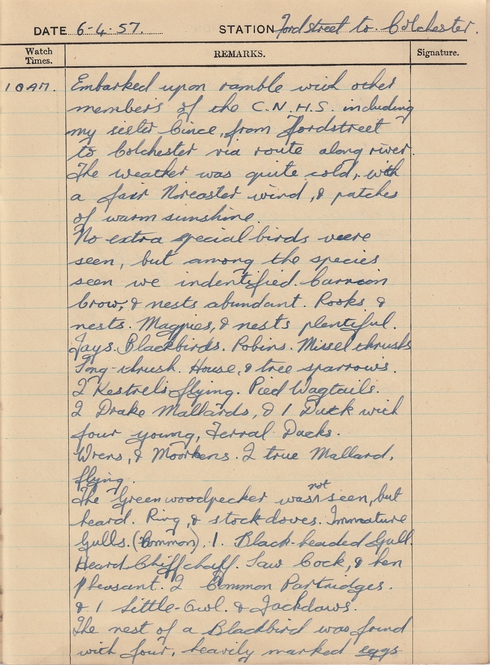 DATE 6-4-57. STATION Fordstreet to Colchester.
Watch Times. REMARKS. Signature.
10AM. Embarked upon ramble with other
members of the C.N.H.S. including
my sister Cince, from Fordstreet
to Colchester via route along river.
The weather was quite cold, with
a fair Noreaster wind, & patches
of warm sunshine.
No extra special birds were
seen, but among the species
seen we indentified. Carrion
Crow, & nests abundant. Rooks &
nests. Magpies, & nests plentiful.
Jays. Blackbirds. Robins. Missel thrushs
Song-thrush. House, & tree sparrows.
2 Kestrels flying. Pied Wagtails.
2 Drake Mallards, & 1 Duck with
four young, Ferral Ducks.
Wrens, & Moorhens. 2 true Mallard,
flying.
The Green woodpecker was not seen, but
heard. Ring, & stock doves. Immature
Gulls. (Common). 1. Black-headed Gull.
Heard Chiffchaff. Saw Cock, & hen
Pheasant. 2 Common Partridges.
& 1 Little-Owl. & Jackdaws.
The nest of a Blackbird was found
with four, heavily marked eggs.